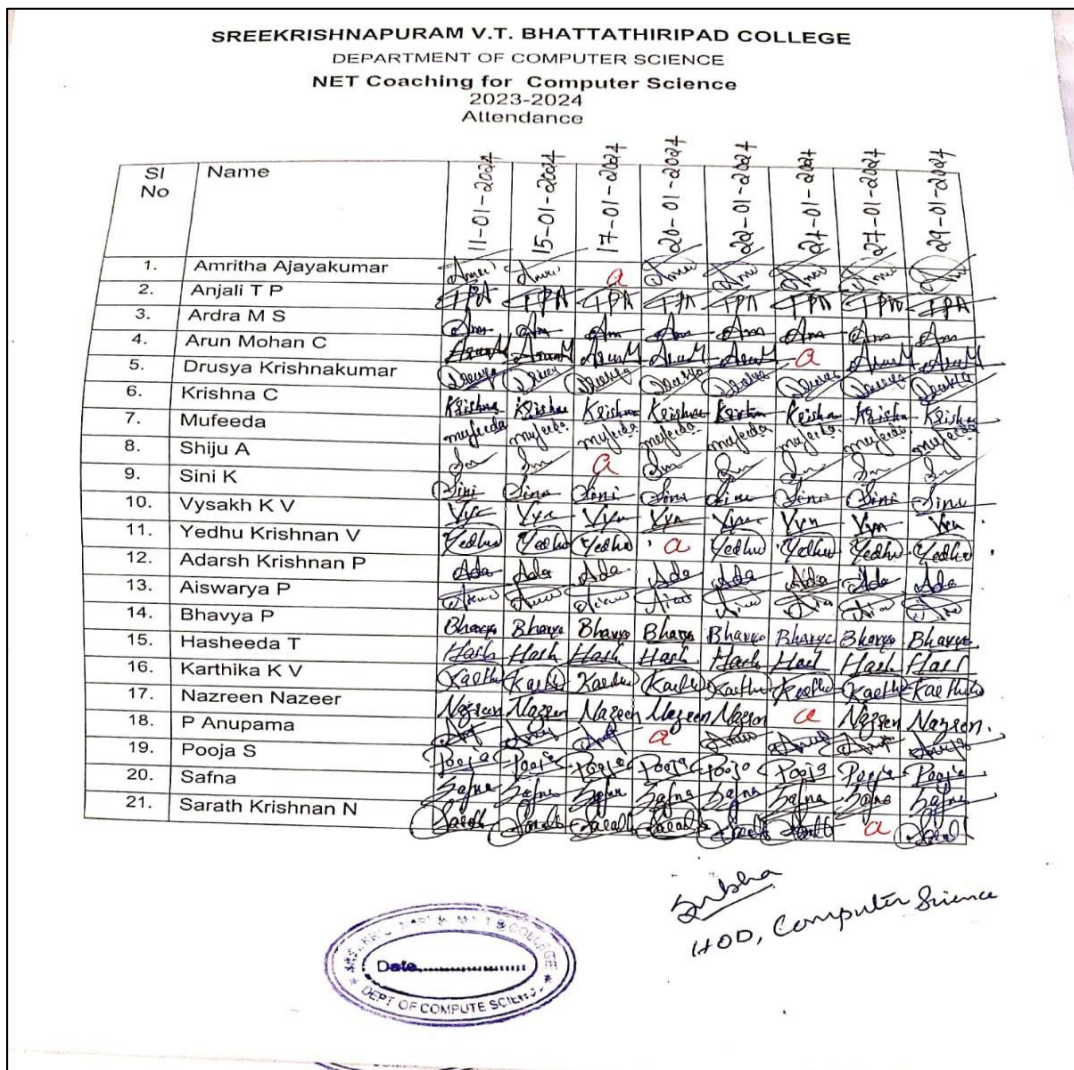 SREEKRISHNAPURAM V.T. BHATTATHIRIPAD COLLEGE
DEPARTMENT OF COMPUTER SCIENCE
NET Coaching for Computer Science
2023-2024
Attendance
Sl No Name 11-01-2024 15-01-2024 17-01-2024 20-01-2024 22-01-2024 24-01-2024 27-01-2024 29-01-2024
1. Amritha Ajayakumar a
2. Anjali T P TPA TPA TPA TPA TPA TPA TPA TPA
3. Ardra M S
4. Arun Mohan C ArunM ArunM ArunM ArunM ArunM a ArunM ArunM
5. Drusya Krishnakumar
6. Krishna C Krishna Krishna Krishna Krishna Krishna Krishna Krishna Krishna
7. Mufeeda mufeeda mufeeda mufeeda mufeeda mufeeda mufeeda mufeeda mufeeda
8. Shiju A a
9. Sini K Sini Sini Sini Sini Sini Sini Sini Sini
10. Vysakh K V
11. Yedhu Krishnan V Yedhu Yedhu Yedhu a Yedhu Yedhu Yedhu Yedhu
12. Adarsh Krishnan P Ada Ada Ada Ada Ada Ada Ada Ada
13. Aiswarya P
14. Bhavya P Bhavya Bhavya Bhavya Bhavya Bhavya Bhavya Bhavya Bhavya
15. Hasheeda T Hash Hash Hash Hash Hash Hash Hash Hash
16. Karthika K V
17. Nazreen Nazeer Nazreen Nazreen Nazreen Nazreen Nazreen a Nazreen Nazreen.
18. P Anupama a
19. Pooja S Pooja Pooja Pooja Pooja Pooja Pooja Pooja Pooja
20. Safna Safna Safna Safna Safna Safna Safna Safna Safna
21. Sarath Krishnan N a
HOD, Computer Science
COLLEGE
Date
DEPT OF COMPUTE SCIENC